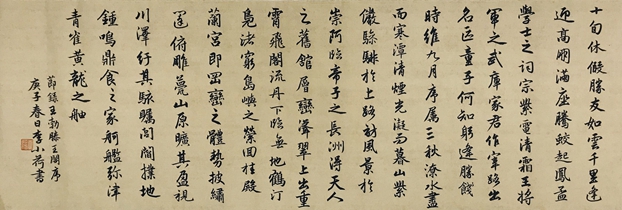 十旬休假勝友如雲千里逢
迎高朋滿座騰蛟起鳳孟
學士之詞宗紫電清霜王將
軍之武庫家君作宰路出
名區童子何知躬逢勝餞
時維九月序屬三秋潦水盡
而寒潭清煙光凝而暮山紫
儼驂騑於上路訪風景於
崇阿臨帝子之長洲得天人
之舊館層巒聳翠上出重
霄飛閣流丹下臨無地鶴汀
鳧渚窮島嶼之縈回桂殿
蘭宮即岡巒之體勢披繡
闥俯雕甍山原曠其盈視
川澤紆其駭矚閭閻撲地
鍾鳴鼎食之家舸艦弥津
青雀黃龍之舳
節錄王勃滕王閣序
庚子春日李小荷書